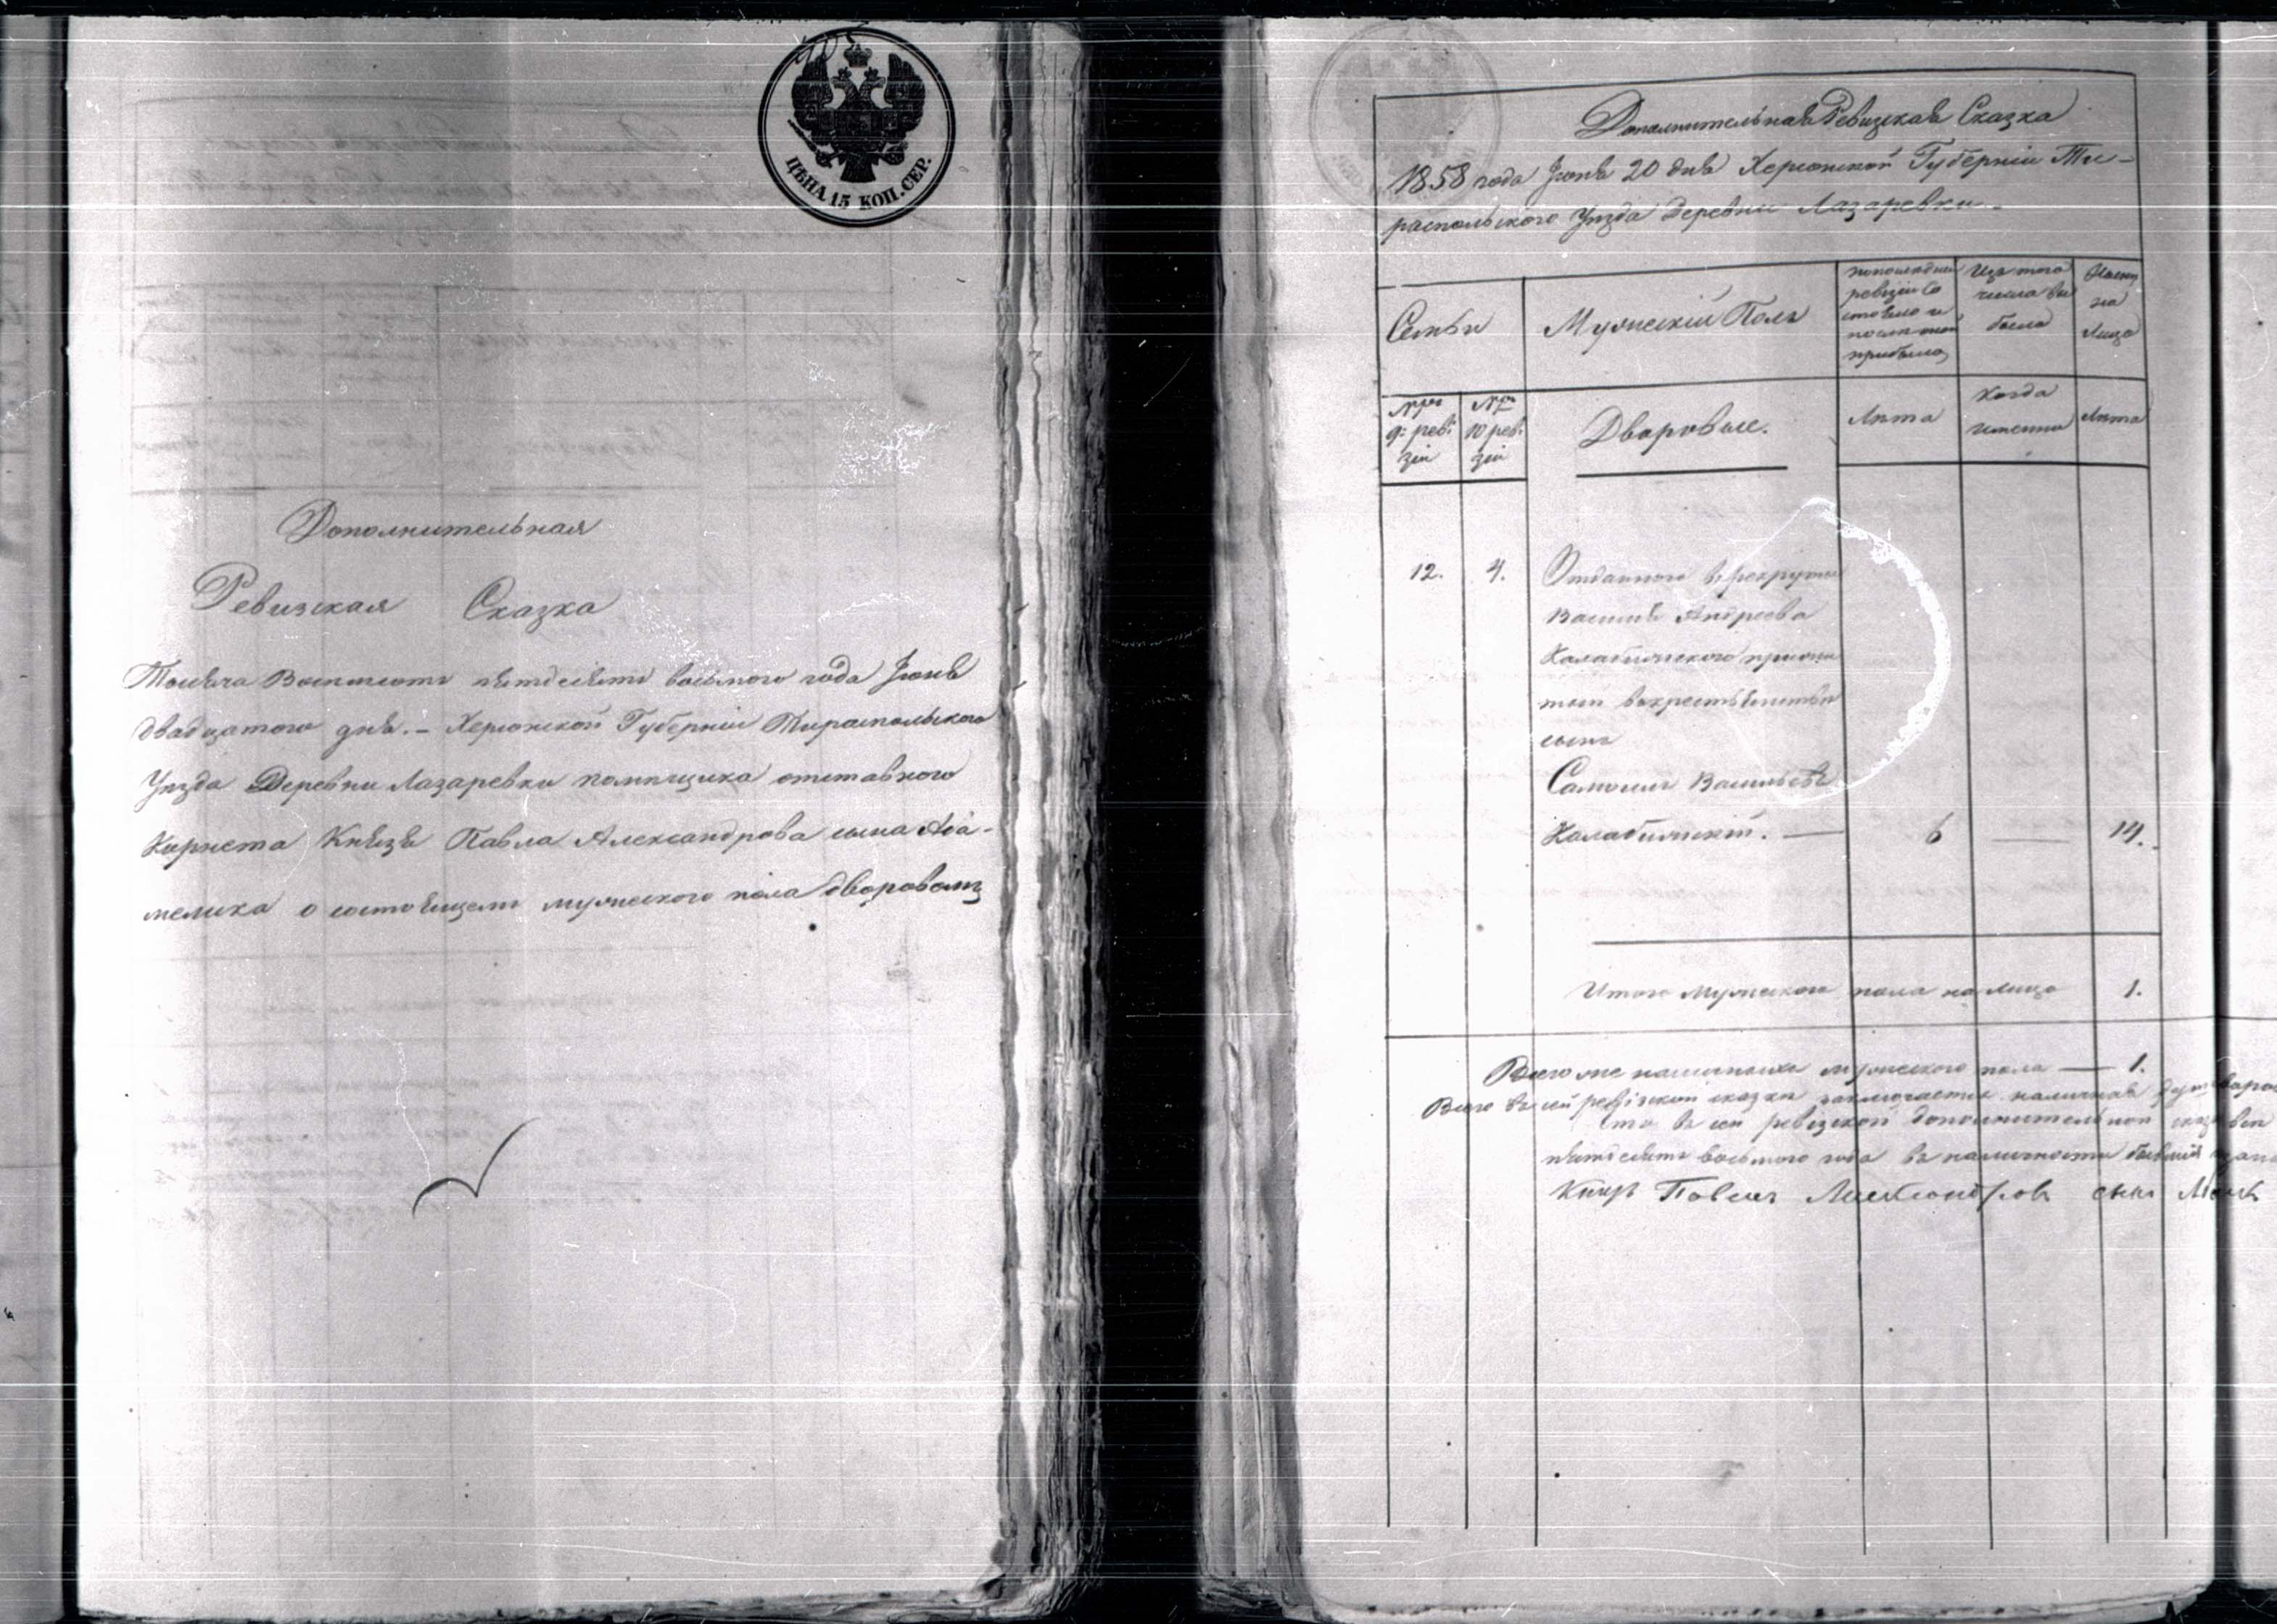 905
ЦѢНА 15 КОП. СЕР.
Дополнительная
Ревизская Сказка
Тысяча Восемсотъ пятдесятъ восьмого года Іюня
двадцатого дня. – Херсонской Губерніи Тираспольского
Уѣзда Деревни Лазаревки помѣщика отставного
Корнета Князя Павла Александрова сына Аба-
мелика о состоящемъ мужеского пола дворовомъ
Дополнительная Ревизская Сказка
1858 года Іюня 20 дня Херсонской Губерніи Ти-
распольского Уѣзда Деревни Лазаревки –
Семьи
Мужескій Полъ
по последней
ревизіи со
стояло и
после оной
прибыло
Изъ того
числа вы
было
Ныне
на
Лицо
№ръ
9й реви
зіи
№ръ
10 реви
зіи
Дворовые.
Лѣта
Когда
именно
Лѣта
12. 4. Отданного въ рекруты
Василія Андреева
Калабинского прижи
тый
сынъ
Самоилъ Васильевъ
Калабинскій. — 6 — 14.
Итого Мужеского пола на лицо 1.
Всего же наличныхъ мужеского пола — 1.
Всего въ сей ревизской сказки заключается наличная душ дворов
Что въ сей ревизской дополнительной сказке вся
пятдесятъ восьмого года въ наличности
Князь Павелъ Александровъ сынъ